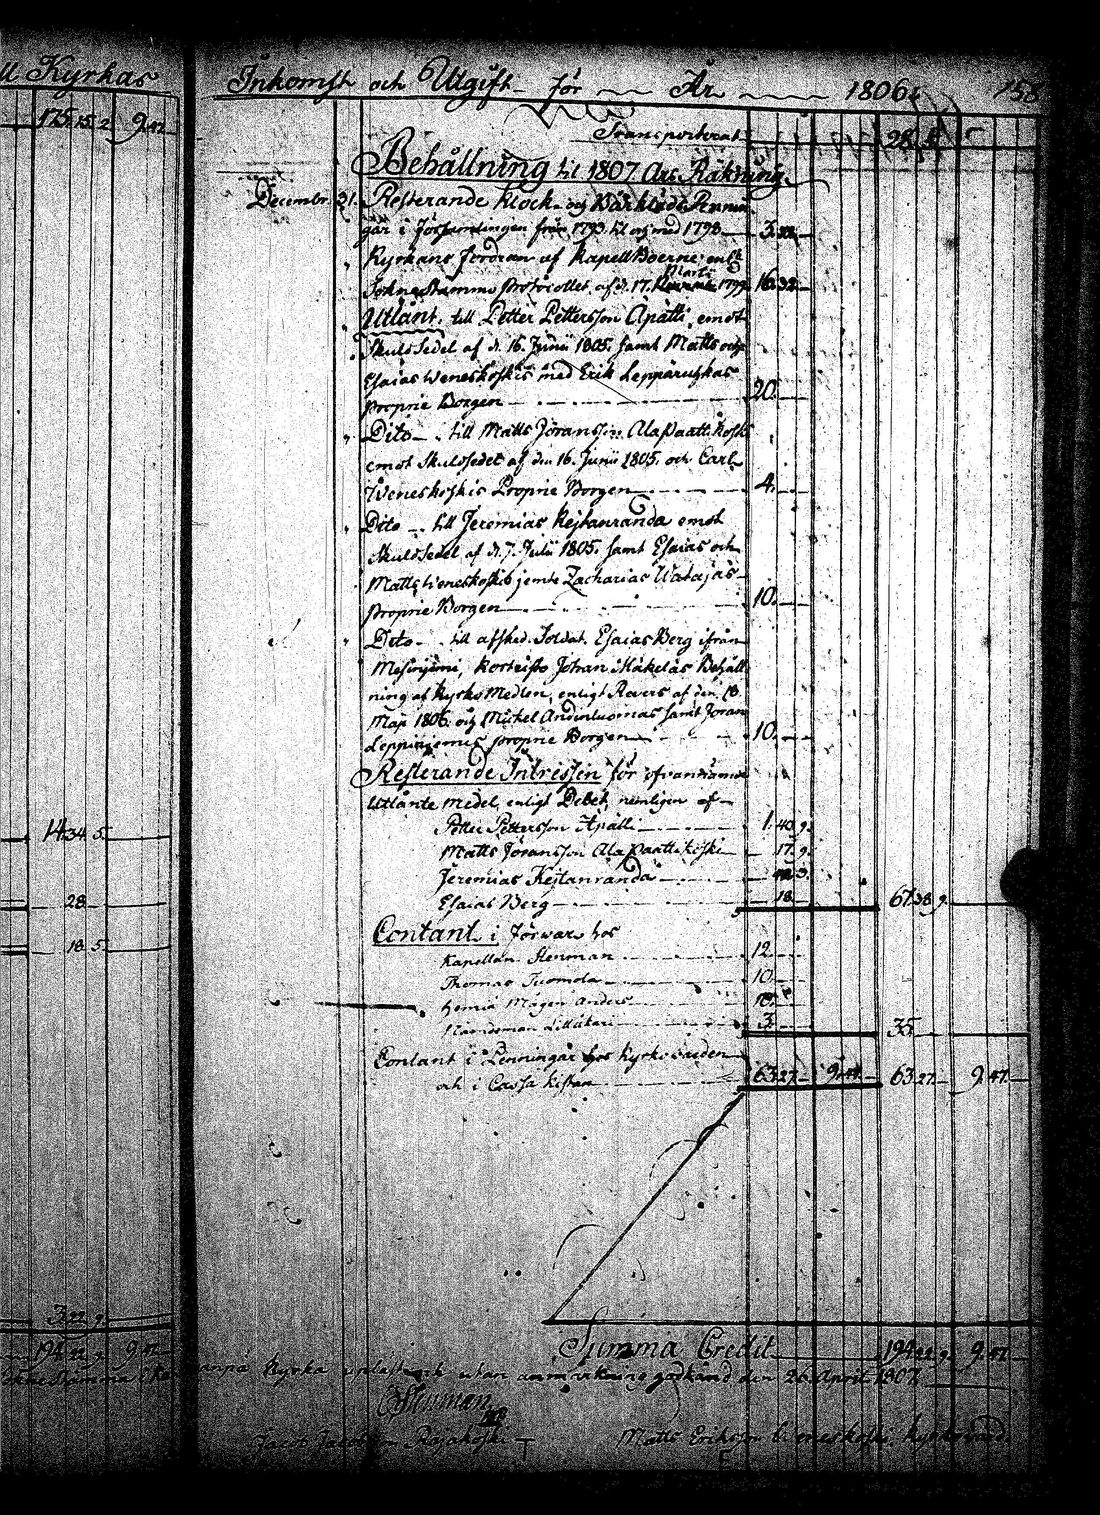 ll Kyrkas
175.15.2 9.47
14.34.5
28
18.5
3.22.9
194.22.9 9.47
Inkomst och Utgift för År 1806. 158
Transporterat 28
Behållning til 1807 Års Räkning.
Decembr. 31. Resterande Klock- och Bårklädes Pennin
gar i Församlingen från 1793 til och med 1798
Kyrkans Fordran af Kapell Boerne enligt
Sockne Stämmo Protocollet af d. 17. Martii 1799 16.32
Utlånt till Petter Pettersson Äpätti emot
Skuldsedel af d. 16. Junii 1805. samt Matts och
Esaias Weneskoskis med Erik Lepparuhkas
proprie Borgen 20.
Dito till Matts Jöransson Alapaattikoski
emot Skuldsedel af den 16. Junii 1805. och Carl
Weneskoskis Proprie Borgen 4.
Dito till Jeremias Kejtanranda emot
Skuldsedel af d. 7. Julii 1805. samt Esaias och
Matts Weneskoskis jemte Zacharias Watajas
proprie Borgen 10.
Dito till afsked. Soldat. Esaias Berg ifrån
Johan Mäkeläs Behåll
ning af Kyrko Medlen, enligt Revers af den 18.
Maji 1806. och Mickel Andinluomas samt Jöran
Leppinjemis proprie Borgen 10.
Resterande Intressen för ofvannämnde
Utlånte medel, enligt Debet, nemligen af
Petter Pettersson Äpätti 1.40.9.
Matts Jöransson Alapaattikoski 17.9.
Jeremias Kejtanranda
Esaias Berg 18. 67.38.9.
Contant i förwar hos
Kapellan Stenman 12.
Thomas Tuomola 10.
Anders 10.
Länsman Lillukari 3. 35.
Contant i Penningar hos Kyrkovärden
och i Cassa kistan 63.27. 9.47. 63.27. 9.47.
Summa Credit 194.22.9. 9.47.
Sockne Stämma i Kyrka upläst och utan anmärkning godkänd den 26. April 1807.
Stenman
Jacob Jacobsson Rajakoski Matts Eriksson Weneskoski, kyrkovärd.